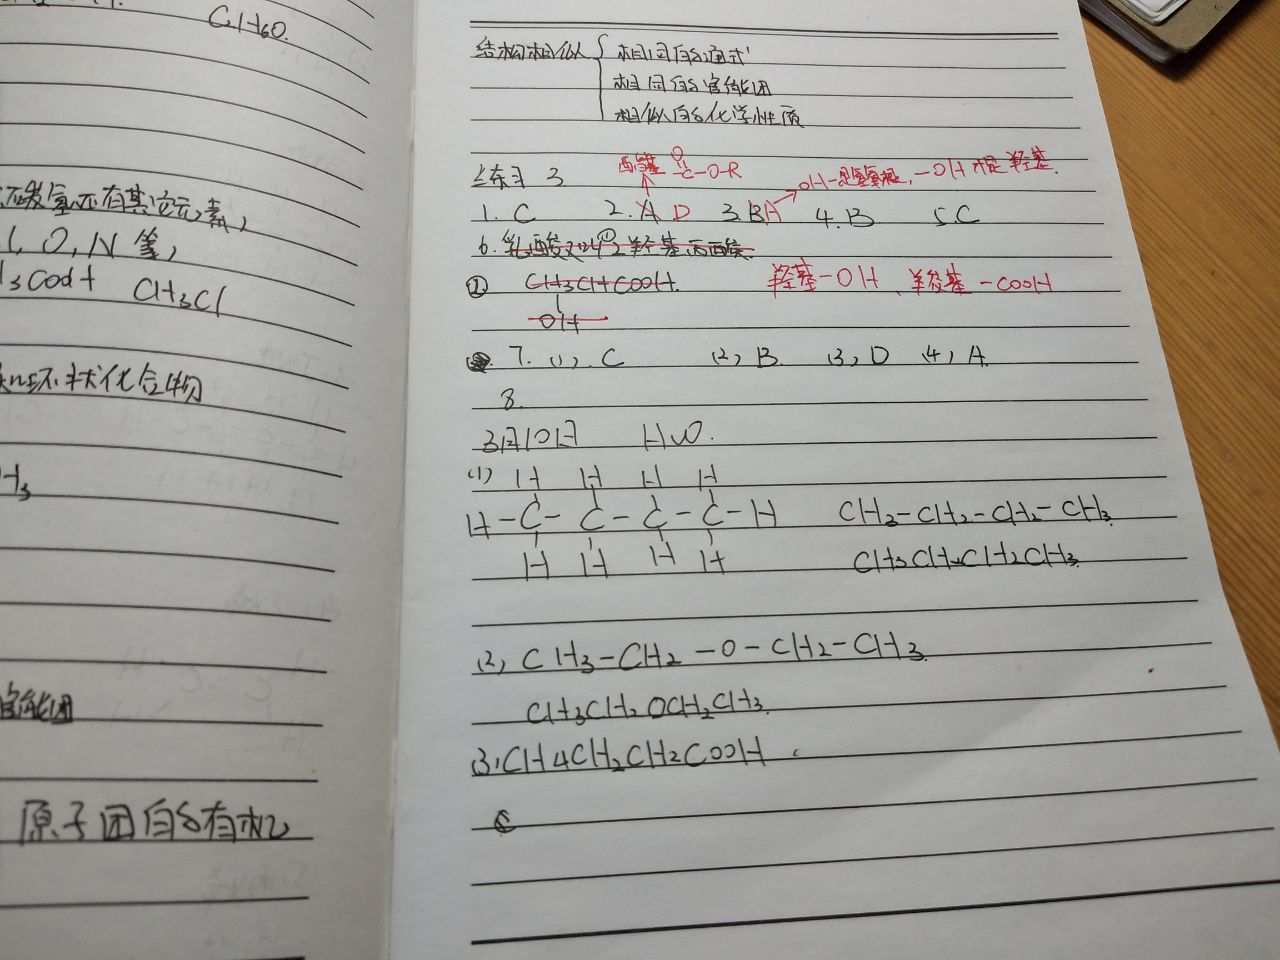 C2H6O.
还有其它元素,
, O, N 等,
CH3Cl
环状化合物
H3
官能团
原子团的有机
结构相似
相同的通式
相同的官能团
相似的化学性质
练习 3
酯基 O
-C-O-R
OH-是氢氧根, -OH 才是 羟基.
1. C 2. A D 3. B A 4. B 5. C
6. 乳酸又叫 2 羟基丙酸.
② CH3CHCOOH. 羟基-OH、羧基-COOH
OH
7. (1), C (2), B. (3), D (4), A.
8.
3月10日 HW.
(1) H H H H
H-C-C-C-C-H CH3-CH2-CH2-CH3.
H H H H CH3CH2CH2CH3.
(2), CH3-CH2-O-CH2-CH3.
CH3CH2OCH2CH3.
(3), CH4CH2CH2COOH
C